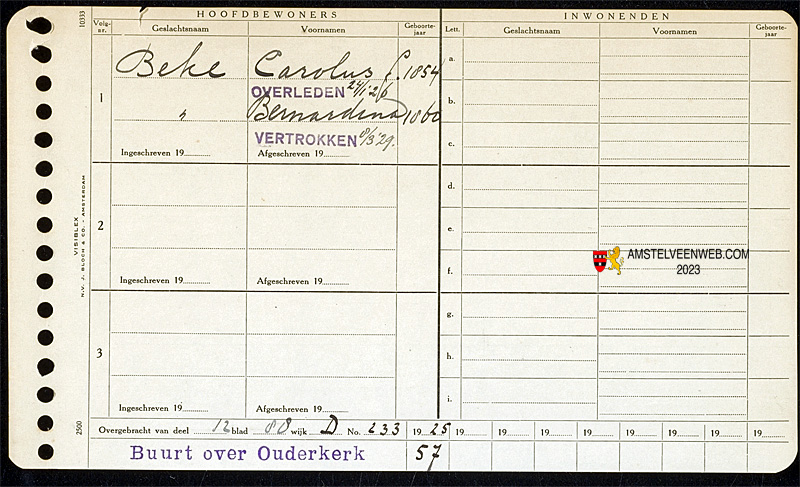 HOOFDBEWONERS
INWONENDEN
Volg-nr. Geslachtsnaam Voornamen Geboorte-jaar Lett. Geslachtsnaam Voornamen Geboorte-jaar
1 Beke Carolus f. 1854
OVERLEDEN 24/1 26
" Bernardina 1860
VERTROKKEN 8/3 '29.
Ingeschreven 19 Afgeschreven 19
2
Ingeschreven 19 Afgeschreven 19
3
Ingeschreven 19 Afgeschreven 19
a.
b.
c.
d.
e.
f.
g.
h.
i.
Overgebracht van deel 12 blad 80 wijk D No. 233 1925 19 19 19 19 19 19 19 19
Buurt over Ouderkerk 57
10333
VISIBLEX
N.V. J. BLOCH & CO. - AMSTERDAM
2500
AMSTELVEENWEB.COM
2023